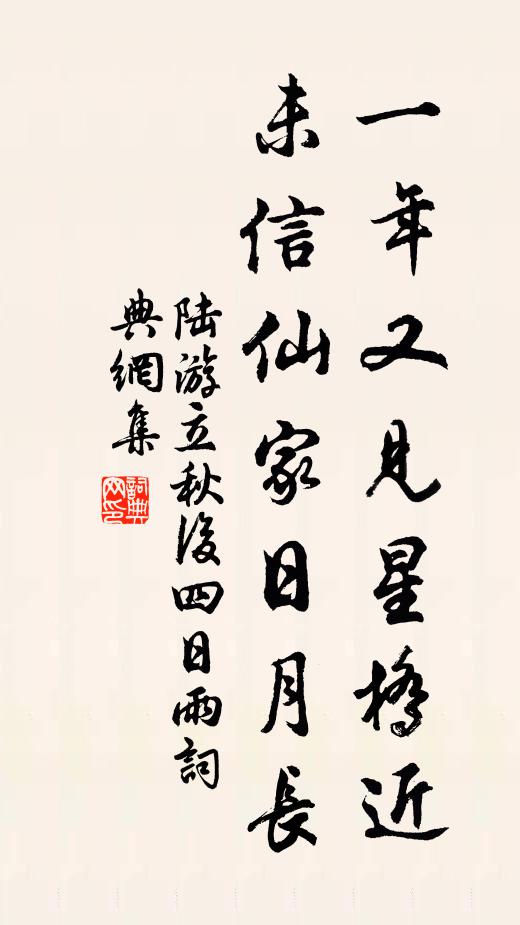 一年又見星橋近
未信仙家日月長
陸游立秋後四日雨詞
典網集
詞典網印